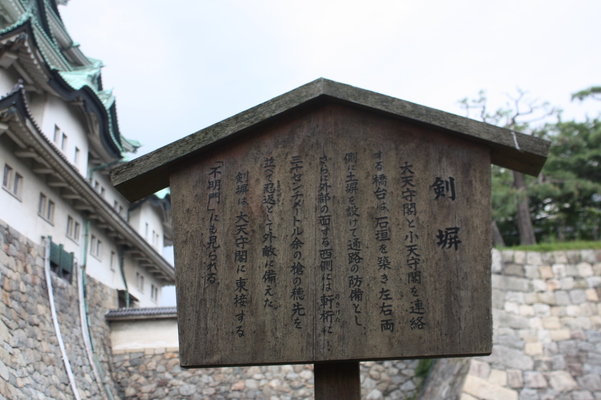 剣塀
大天守閣と小天守閣を連絡
する橋台は、石垣を築き左右両
側に土塀を設けて通路の防備とし
さらに外部の面する西側には軒桁に、
のきげた
三十センチメートル余の槍の穂先を
並べ忍返として外敵に備えた
剣塀は、大天守閣に東接する
「不明門」にも見られる。